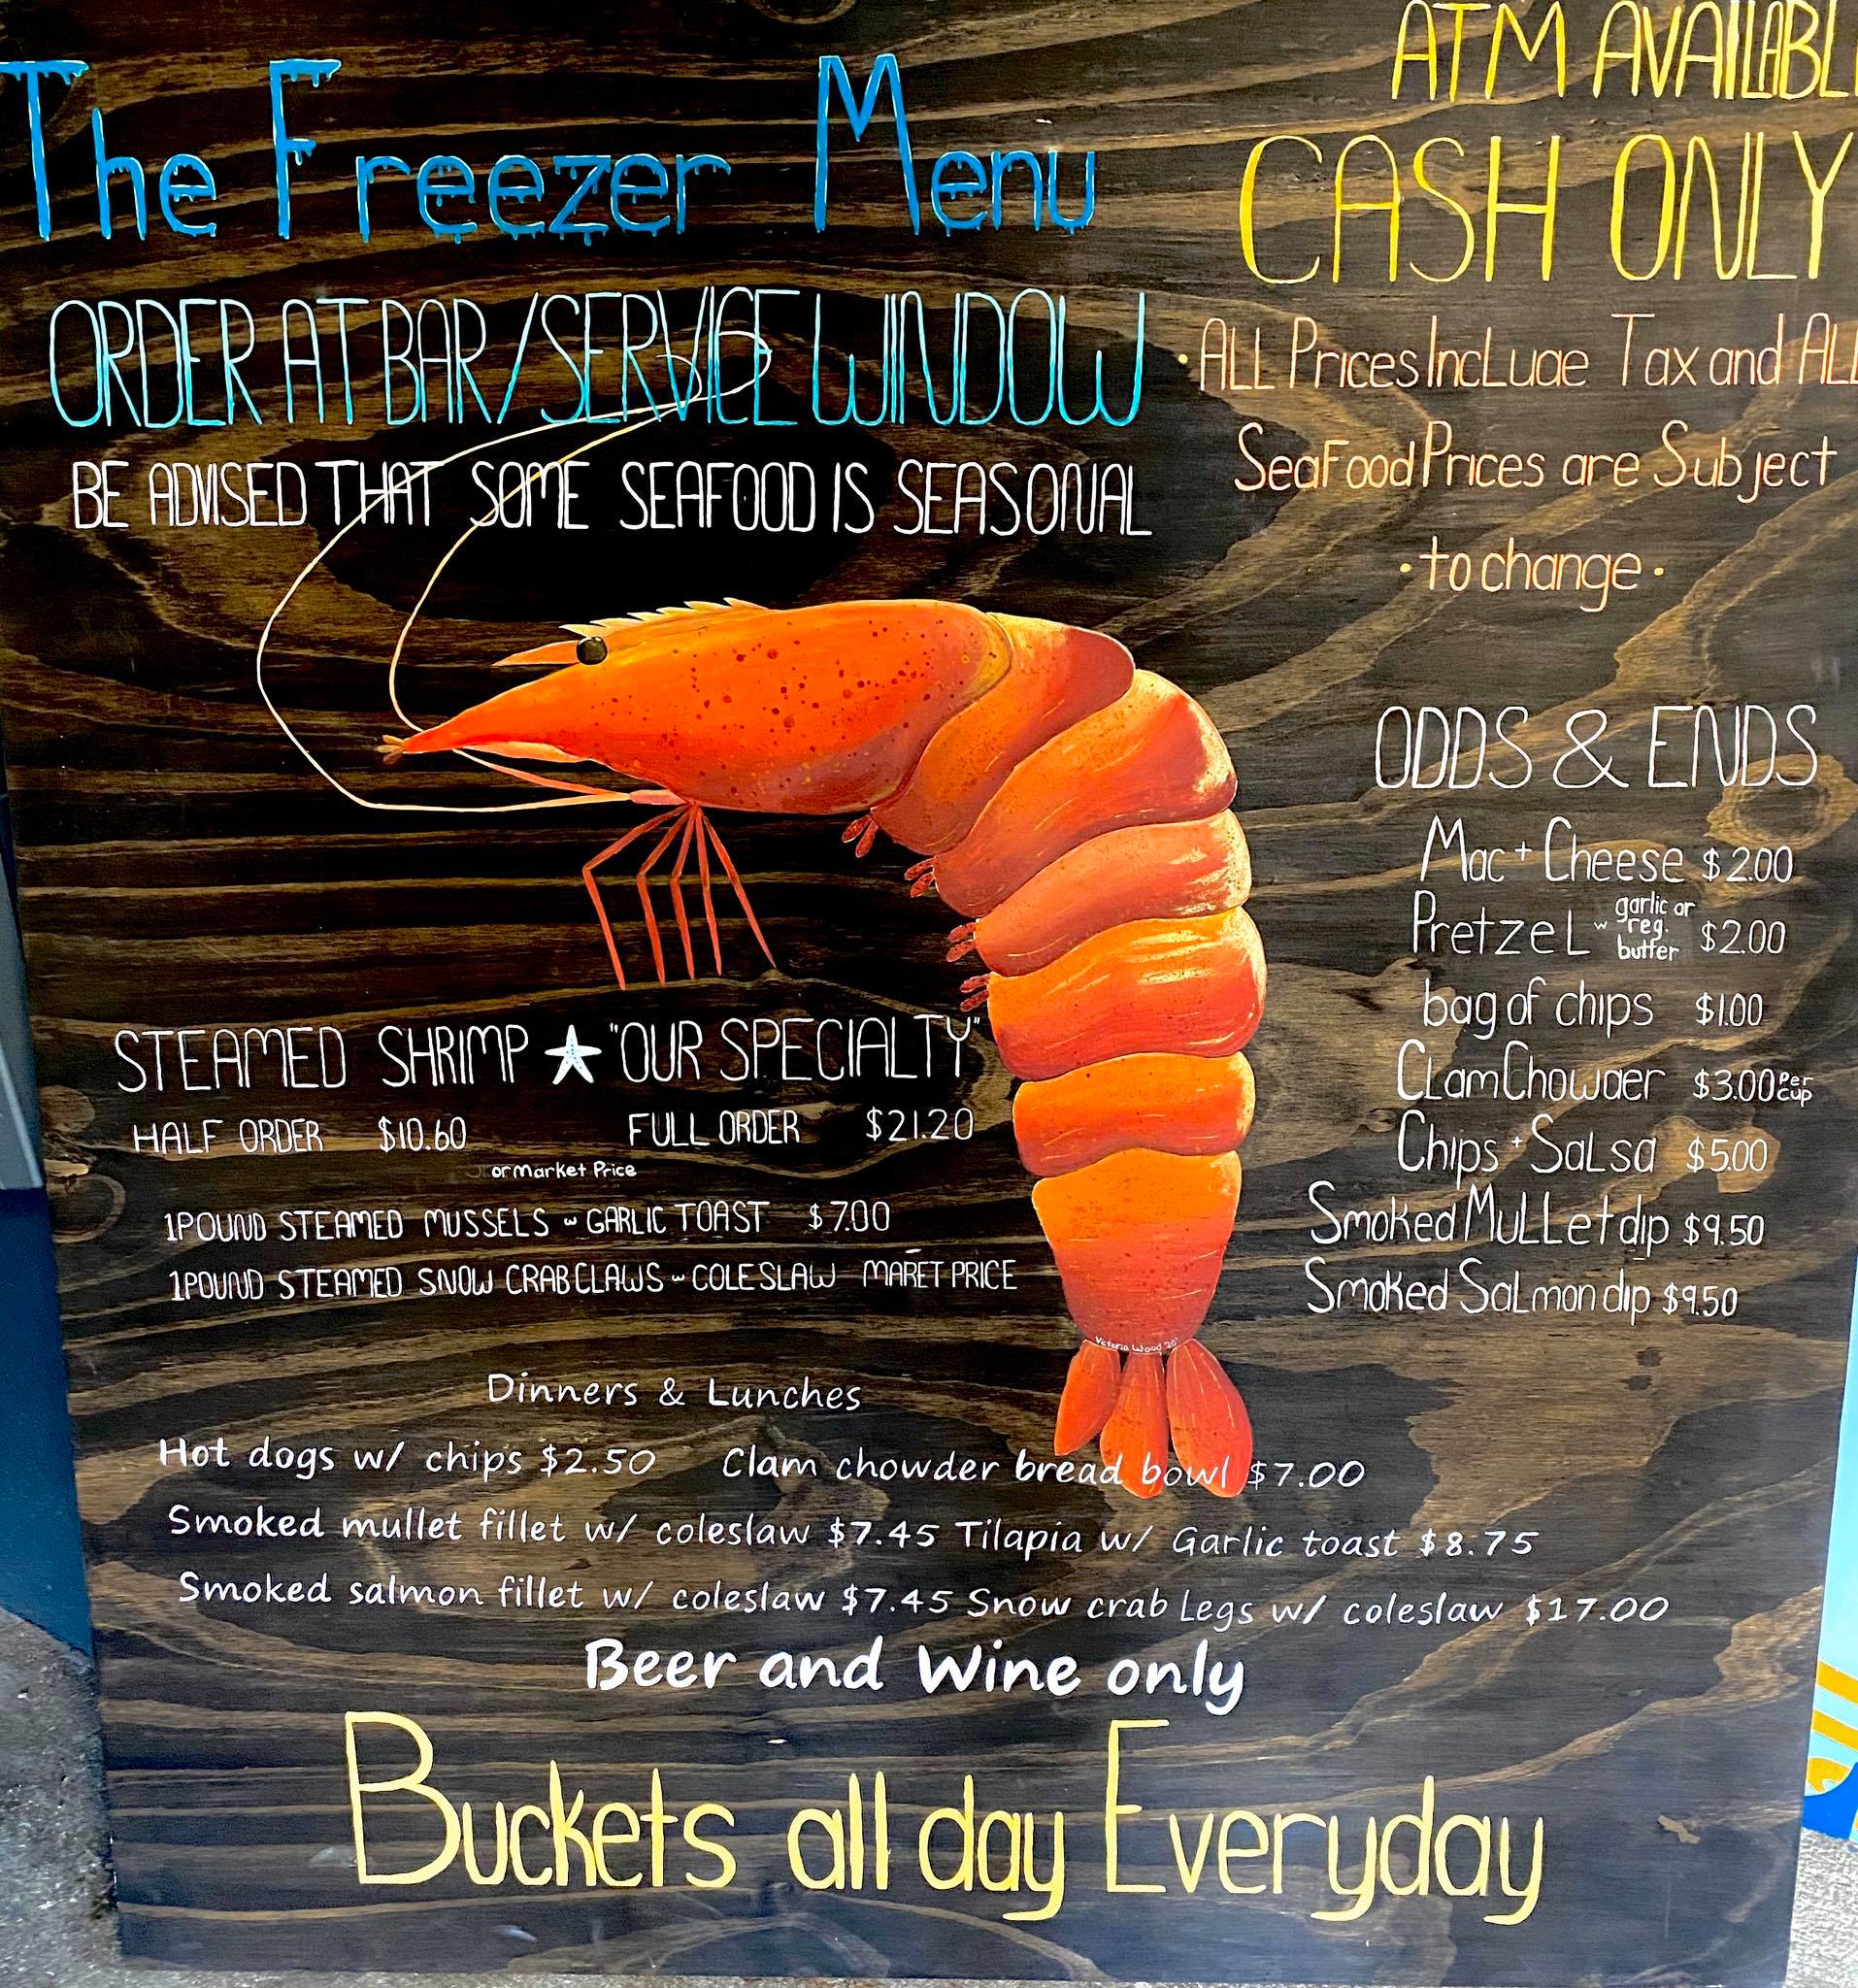 The Freezer Menu
ORDER AT BAR/SERVICE WINDOW
BE ADVISED THAT SOME SEAFOOD IS SEASONAL
ATM AVAILABL
CASH ONLY
·ALL Prices IncLude Tax and ALL
SeaFood Prices are Subject
·to change·
ODDS & ENDS
Mac + Cheese $2.00
PretzeL w garlic or reg. butter $2.00
bag of chips $1.00
CLam Chowder $3.00 Per cup
Chips + SaLsa $5.00
Smoked MuLLet dip $9.50
Smoked SaLmon dip $9.50
STEAMED SHRIMP "OUR SPECIALTY"
HALF ORDER $10.60 FULL ORDER $21.20
or Market Price
1 POUND STEAMED MUSSELS w GARLIC TOAST $7.00
1 POUND STEAMED SNOW CRAB CLAWS w COLESLAW MARET PRICE
Victoria Wood 20'
Dinners & Lunches
Hot dogs w/ chips $2.50 Clam chowder bread bowl $7.00
Smoked mullet fillet w/ coleslaw $7.45 Tilapia w/ Garlic toast $8.75
Smoked salmon fillet w/ coleslaw $7.45 Snow crab Legs w/ coleslaw $17.00
Beer and Wine only
Buckets all day Everyday